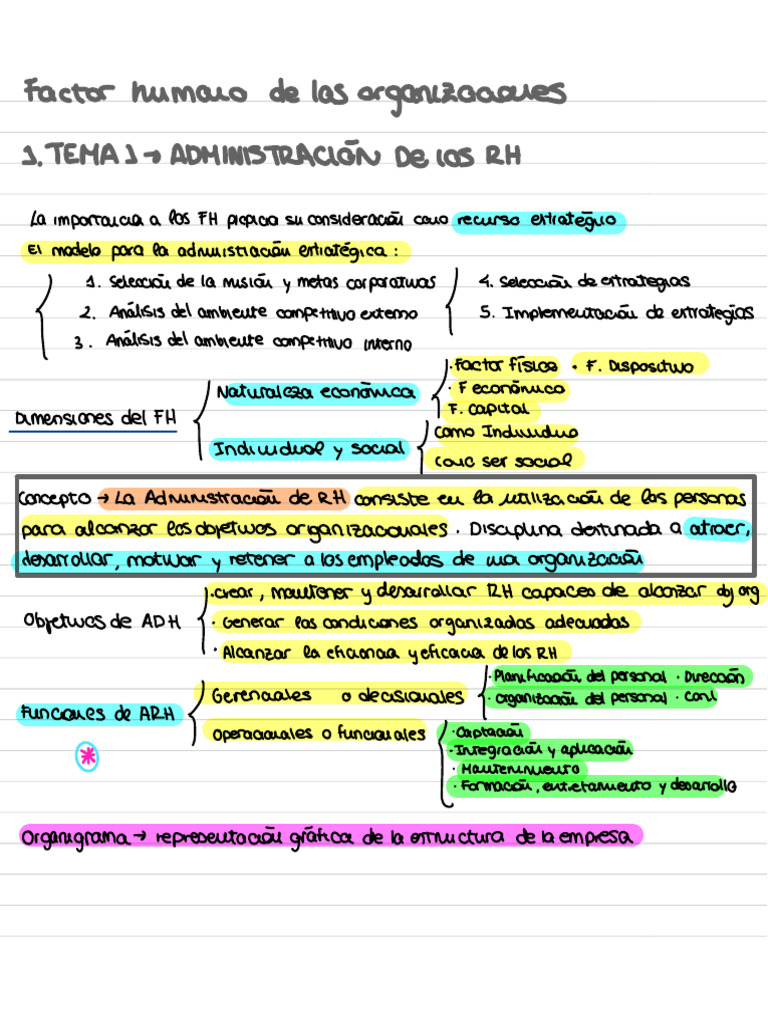 Factor humano de las organizaciones
1. TEMA 1 → ADMINISTRACIÓN De los RH
La importancia a los FH propicia su consideración como recurso estratégico
El modelo para la administración estratégica :
1. Selección de la misión y metas corporativas
2. Análisis del ambiente competitivo externo
3. Análisis del ambiente competitivo interno
4. Selección de estrategias
5. Implementación de estrategias
Dimensiones del FH
Naturaleza económica
· Factor físico · F. Dispositivo
· F económico
F. Capital
Individual y social
Como Individuo
Como ser social
Concepto → La Administración de RH consiste en la utilización de las personas
para alcanzar los objetivos organizacionales. Disciplina destinada a atraer,
desarrollar, motivar y retener a los empleados de una organización
Objetivos de ADH
· crear, mantener y desarrollar RH capaces de alcanzar obj org
· Generar las condiciones organizados adecuadas
· Alcanzar la eficiencia y eficacia de los RH
Funciones de ARH
Gerenciales o decisionales
· Planificación del personal · Dirección
· organización del personal · Conl
Operacionales o funcionales
· Captación
· Integración y aplicación
· Mantenimiento
· Formación, entretamiento y desarrollo
*
Organigrama → representación gráfica de la estructura de la empresa